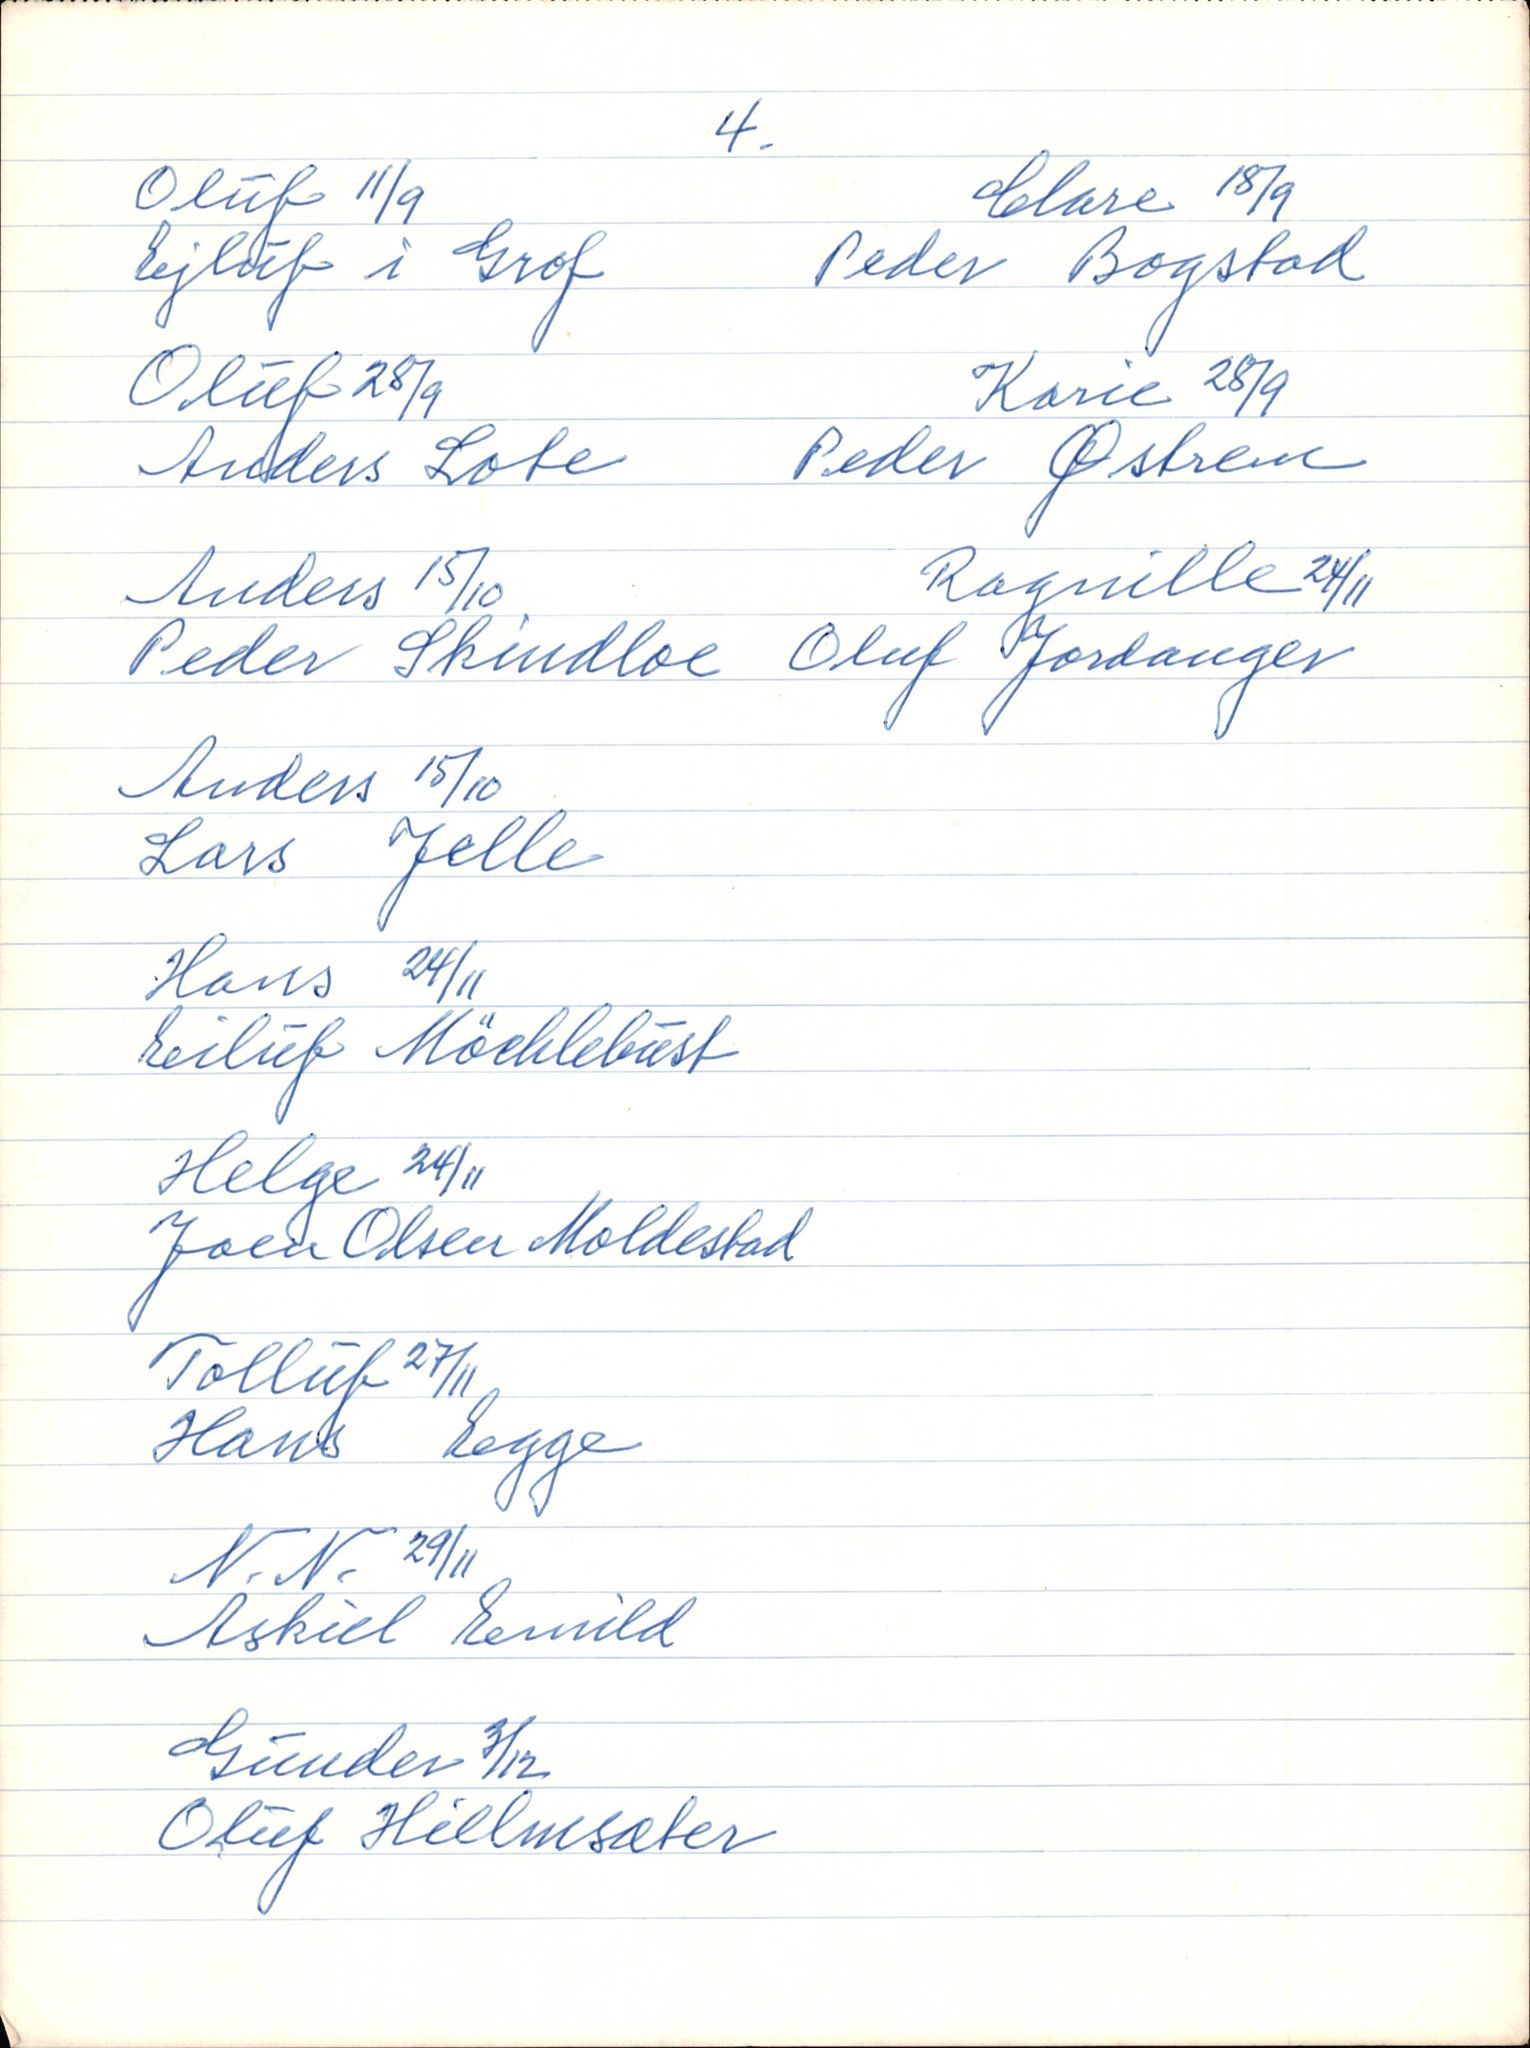 4.
Oluf 11/9
Ejluf i Grof
Oluf 28/9
Anders Lote
Anders 15/10
Peder Skindloe
Anders 15/10
Lars Jelle
Hans 24/11
Eiluf Möchlebust
Helge 24/11
Joen Olsen Moldestad
Tolluf 27/11
Hans Egge
N. N. 29/11
Askiel Emild
Gunder 3/12
Oluf Hillmsæter
Clare 18/9
Peder Bogstad
Karie 28/9
Peder Østrem
Ragnille 24/11
Oluf Jordanger